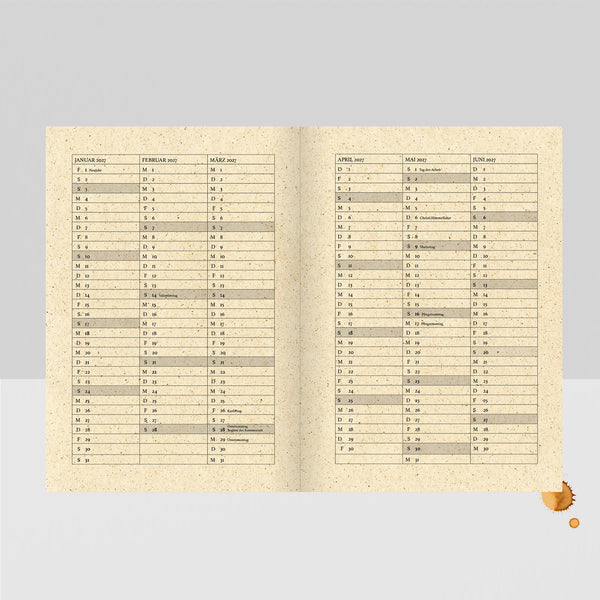 JANUAR 2027
F 1 Neujahr
S 2
S 3
M 4
D 5
M 6
D 7
F 8
S 9
S 10
M 11
D 12
M 13
D 14
F 15
S 16
S 17
M 18
D 19
M 20
D 21
F 22
S 23
S 24
M 25
D 26
M 27
D 28
F 29
S 30
S 31
FEBRUAR 2027
M 1
D 2
M 3
D 4
F 5
S 6
S 7
M 8
D 9
M 10
D 11
F 12
S 13
S 14 Valentinstag
M 15
D 16
M 17
D 18
F 19
S 20
S 21
M 22
D 23
M 24
D 25
F 26
S 27
S 28
MÄRZ 2027
M 1
D 2
M 3
D 4
F 5
S 6
S 7
M 8
D 9
M 10
D 11
F 12
S 13
S 14
M 15
D 16
M 17
D 18
F 19
S 20
S 21
M 22
D 23
M 24
D 25
F 26 Karfreitag
S 27
S 28 Ostersonntag
Beginn der Sommerzeit
M 29 Ostermontag
D 30
M 31
APRIL 2027
D 1
F 2
S 3
S 4
M 5
D 6
M 7
D 8
F 9
S 10
S 11
M 12
D 13
M 14
D 15
F 16
S 17
S 18
M 19
D 20
M 21
D 22
F 23
S 24
S 25
M 26
D 27
M 28
D 29
F 30
MAI 2027
S 1 Tag der Arbeit
S 2
M 3
D 4
M 5
D 6 Christi Himmelfahrt
F 7
S 8
S 9 Muttertag
M 10
D 11
M 12
D 13
F 14
S 15
S 16 Pfingstsonntag
M 17 Pfingstmontag
D 18
M 19
D 20
F 21
S 22
S 23
M 24
D 25
M 26
D 27
F 28
S 29
S 30
M 31
JUNI 2027
D 1
M 2
D 3
F 4
S 5
S 6
M 7
D 8
M 9
D 10
F 11
S 12
S 13
M 14
D 15
M 16
D 17
F 18
S 19
S 20
M 21
D 22
M 23
D 24
F 25
S 26
S 27
M 28
D 29
M 30